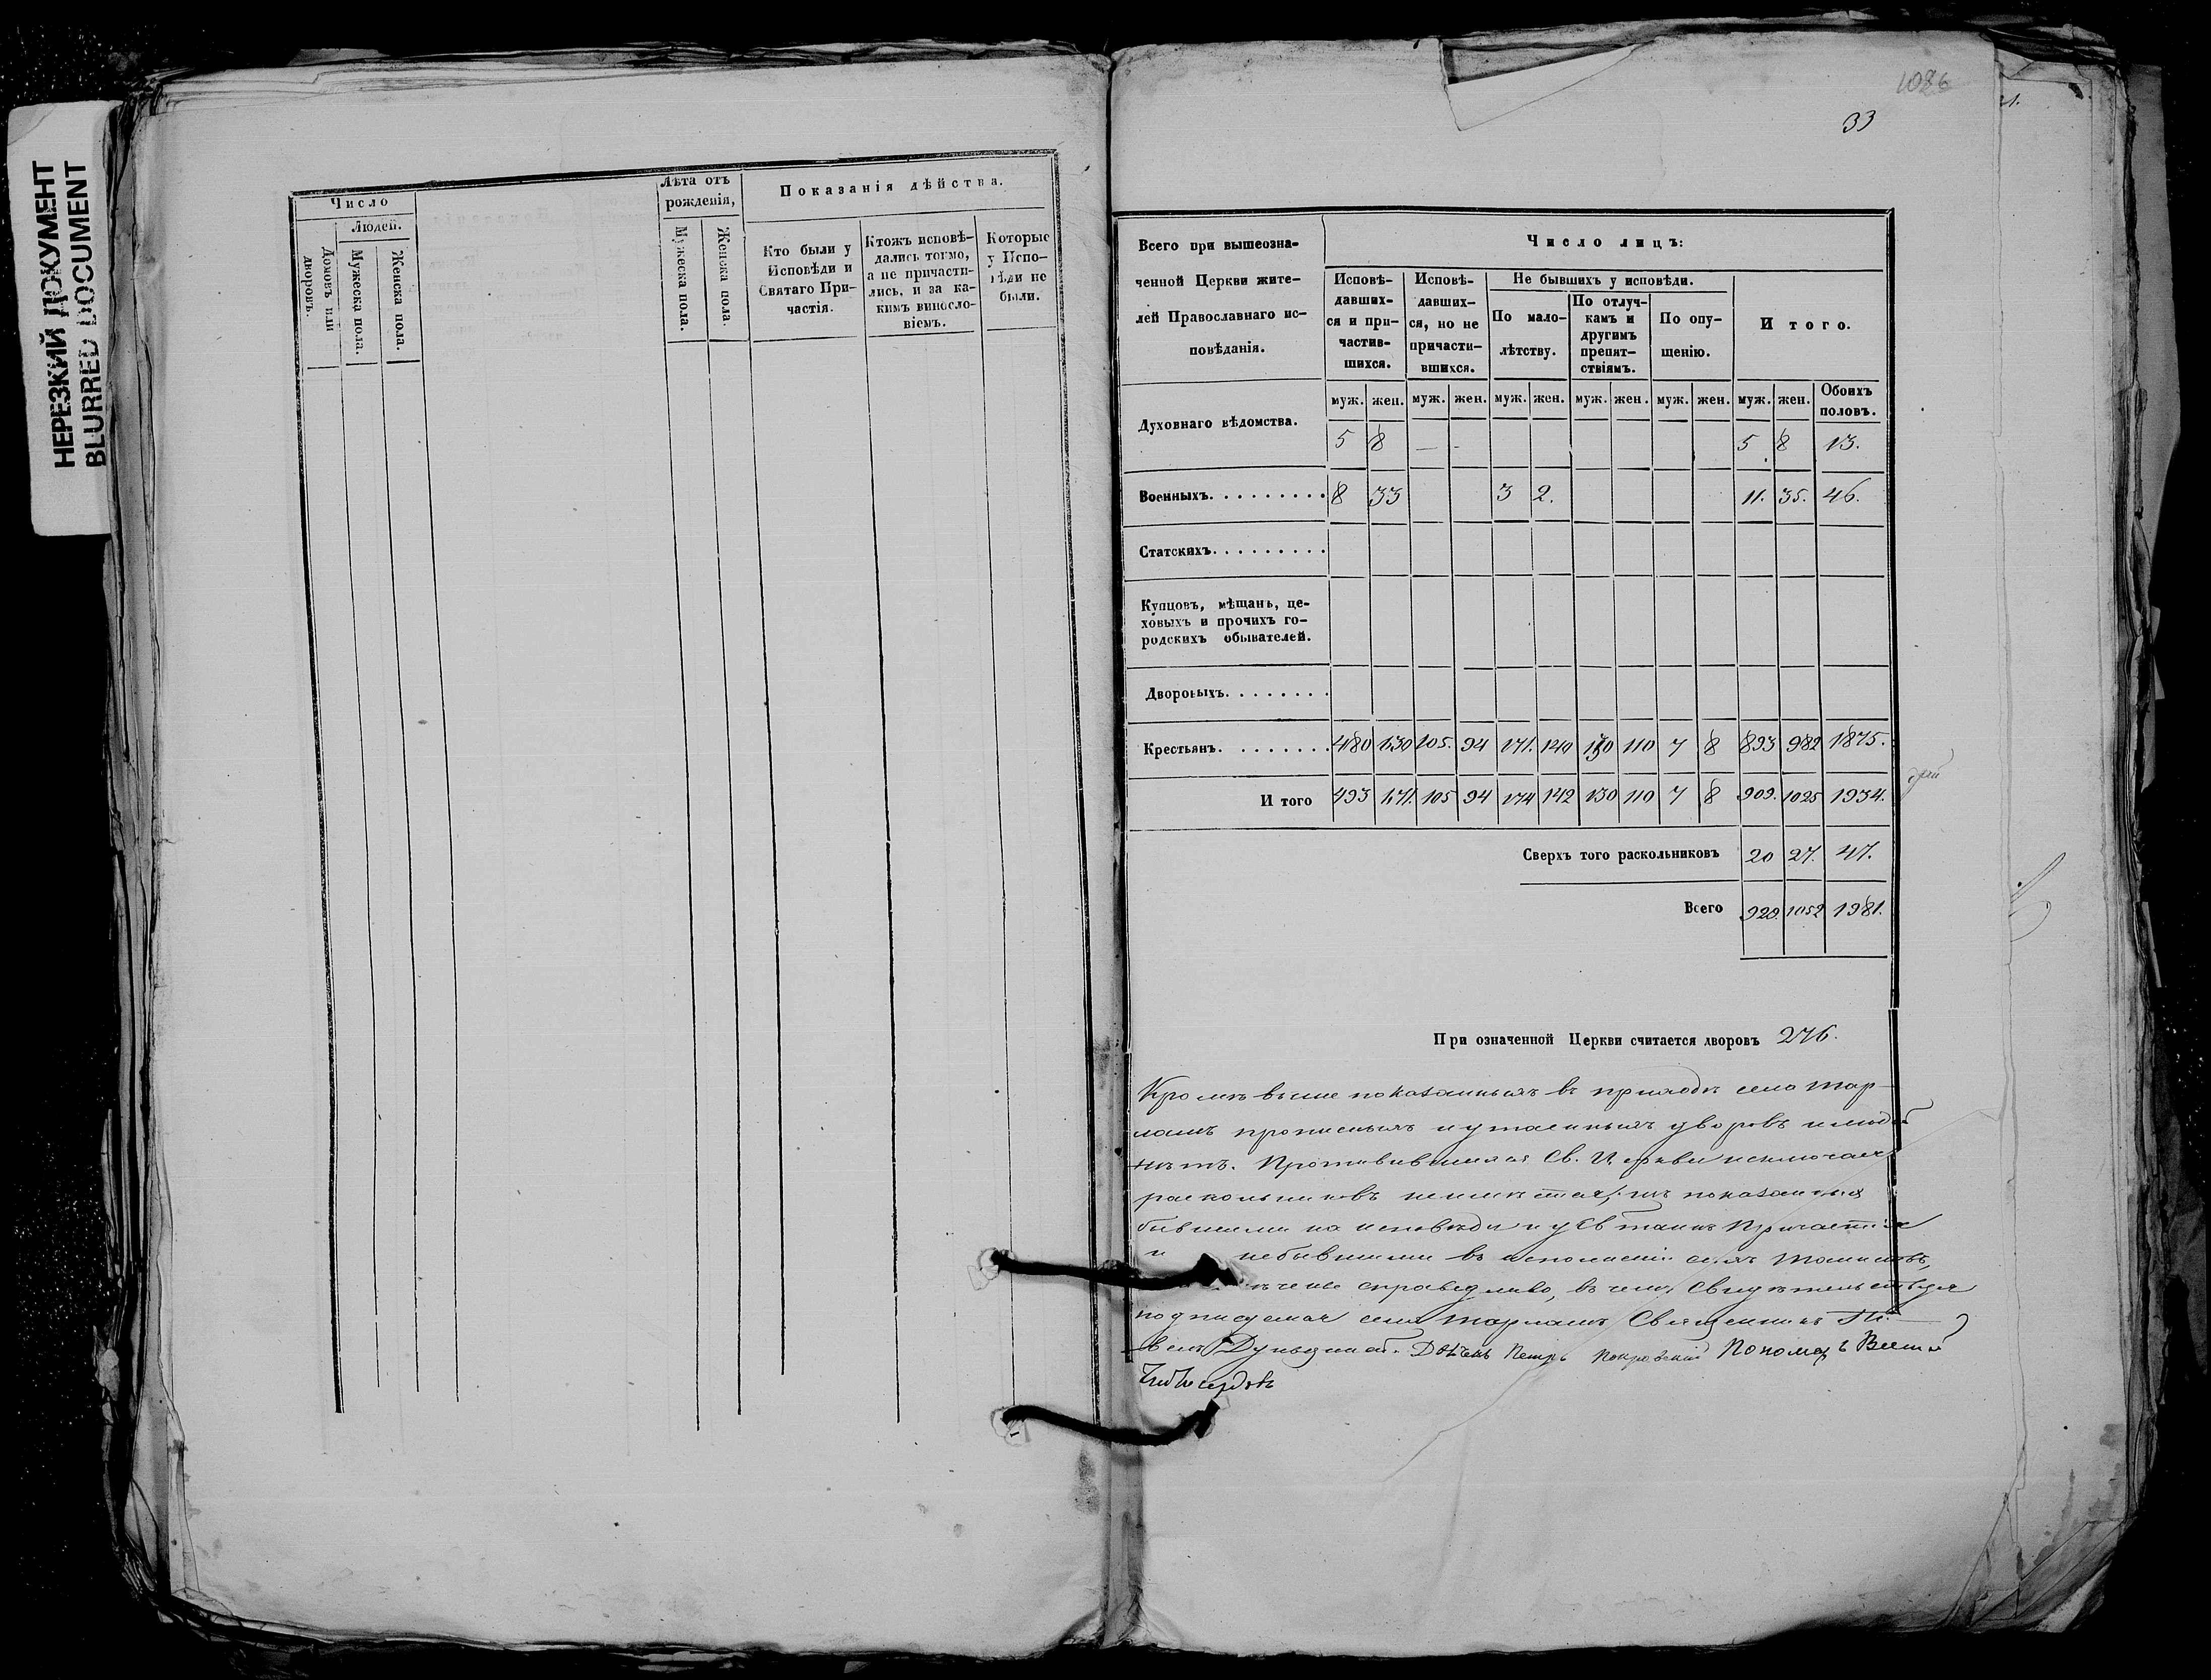 НЕРЕЗКИЙ ДОКУМЕНТ
BLURRED DOCUMENT
Число
Людей.
Домовъ или дворовъ.
Мужеска пола.
Женска пола.
Лѣта отъ рожденія,
Мужеска пола.
Женска пола.
Показанія дѣйства.
Кто были у
Исповѣди и
Святаго При-
частія.
Ктожъ исповѣ-
дались токмо,
а не причасти-
лись, и за ка-
кимъ виносло-
віемъ.
Которые
у Испо-
вѣди не
были.
1026
33
Всего при вышеозна-
ченной Церкви жите-
лей Православнаго ис-
повѣданія.
Число лицъ:
Исповѣ-
давших-
ся и при-
частив-
шихся.
Исповѣ-
давших-
ся, но не
причасти-
вшихся.
Не бывшихъ у исповѣди.
По мало-
лѣтству.
По отлуч-
камъ и
другимъ
препят-
ствіямъ.
По опу-
щенію.
И того.
муж. жен. муж. жен. муж. жен. муж. жен. муж. жен. муж. жен. Обоихъ половъ.
Духовнаго вѣдомства. 5 8 — - 5 8 13.
Военныхъ. 8 33 3 2. 11. 35. 46.
Статскихъ.
Купцовъ, мѣщанъ, це-
ховыхъ и прочихъ го-
родскихъ обывателей.
Дворовыхъ.
Крестьянъ. 480 630 105. 94 171. 140 130 110 7 8 893 982 1875.
И того 493 671. 105 94 174 142 130 110 7 8 909. 1025 1934.
Сверхъ того раскольниковъ 20 27. 47.
Всего 929. 1052 1981.
При означенной Церкви считается дворовъ 276.
Кромѣ выше показанныхъ въ приходѣ села
прописныхъ и утаенныхъ дворовъ и людей
нѣтъ. Св. Церкви
раскольниковъ показанныя
бывшими на исповѣди и у Св таинъ Причастія
и небывшими въ
справедливо, въ чемъ свидѣтельствуя
подписуемся села Священникъ
Дьячекъ Петръ Покровскій Пономарь